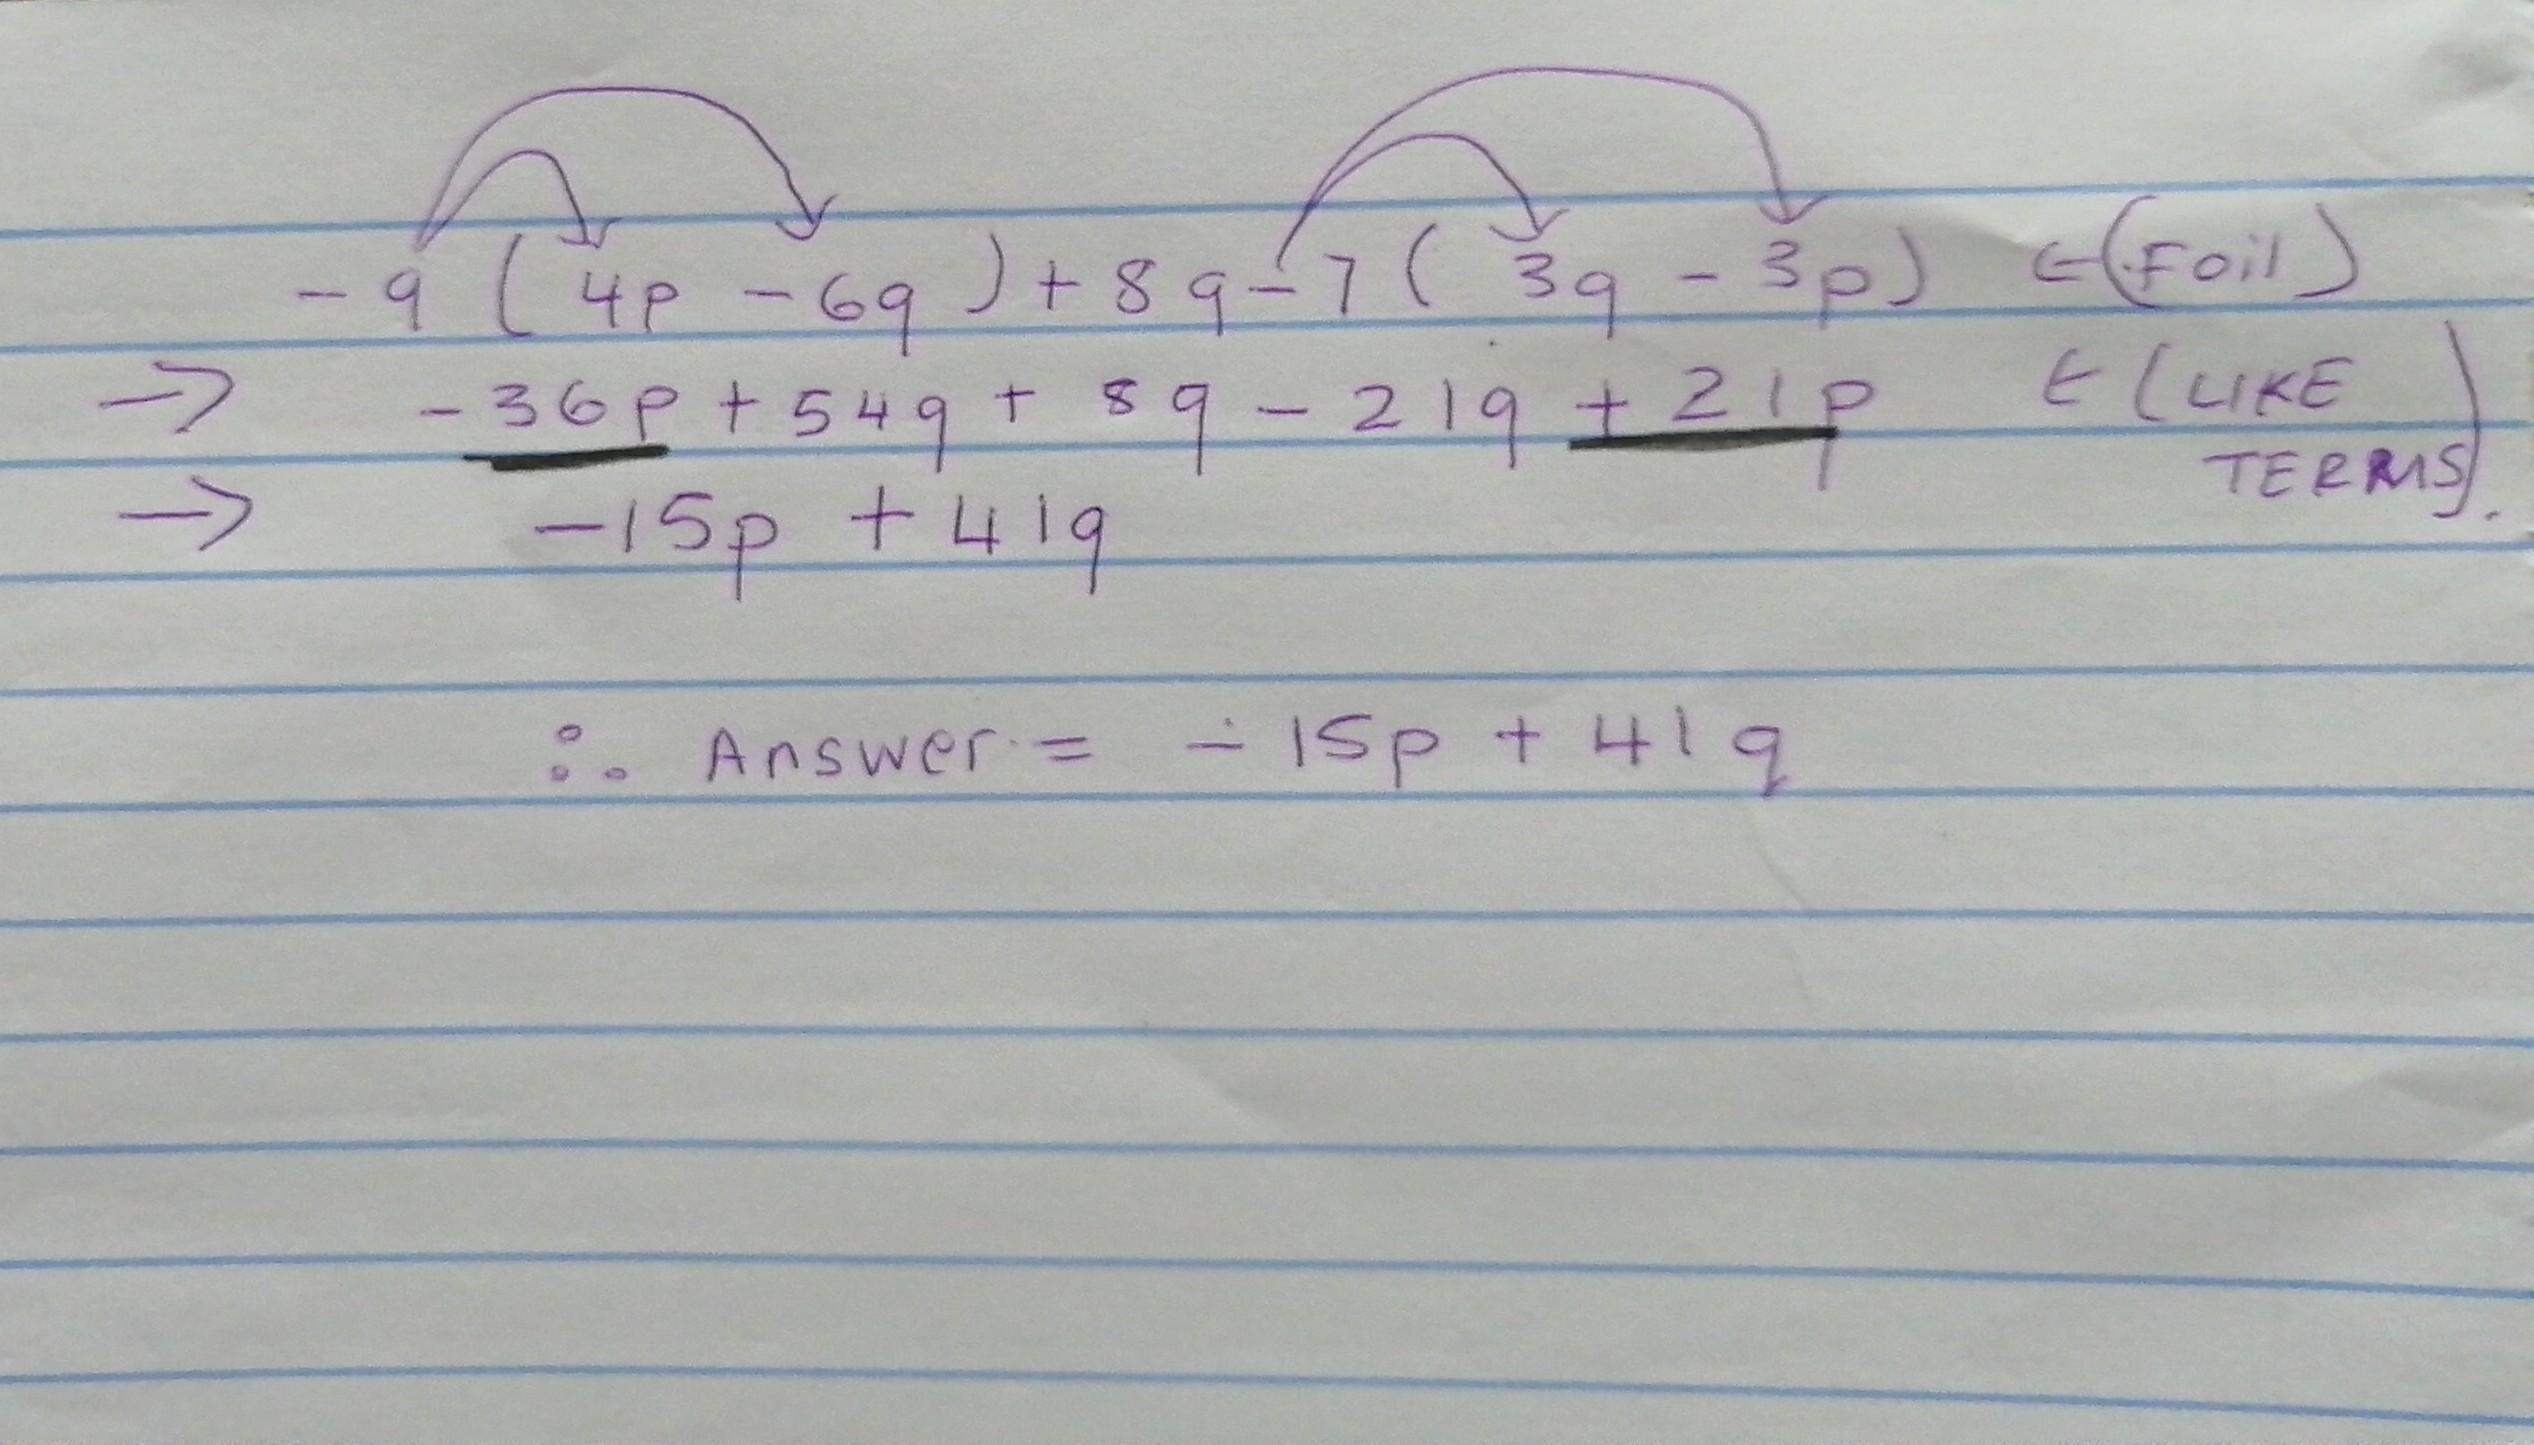 -9 (4p - 6q) + 8q - 7 (3q - 3p) ← (Foil)
→ -36p + 54q + 8q - 21q + 21p ← (LIKE TERMS).
→ -15p + 41q
∴ Answer = -15p + 41q